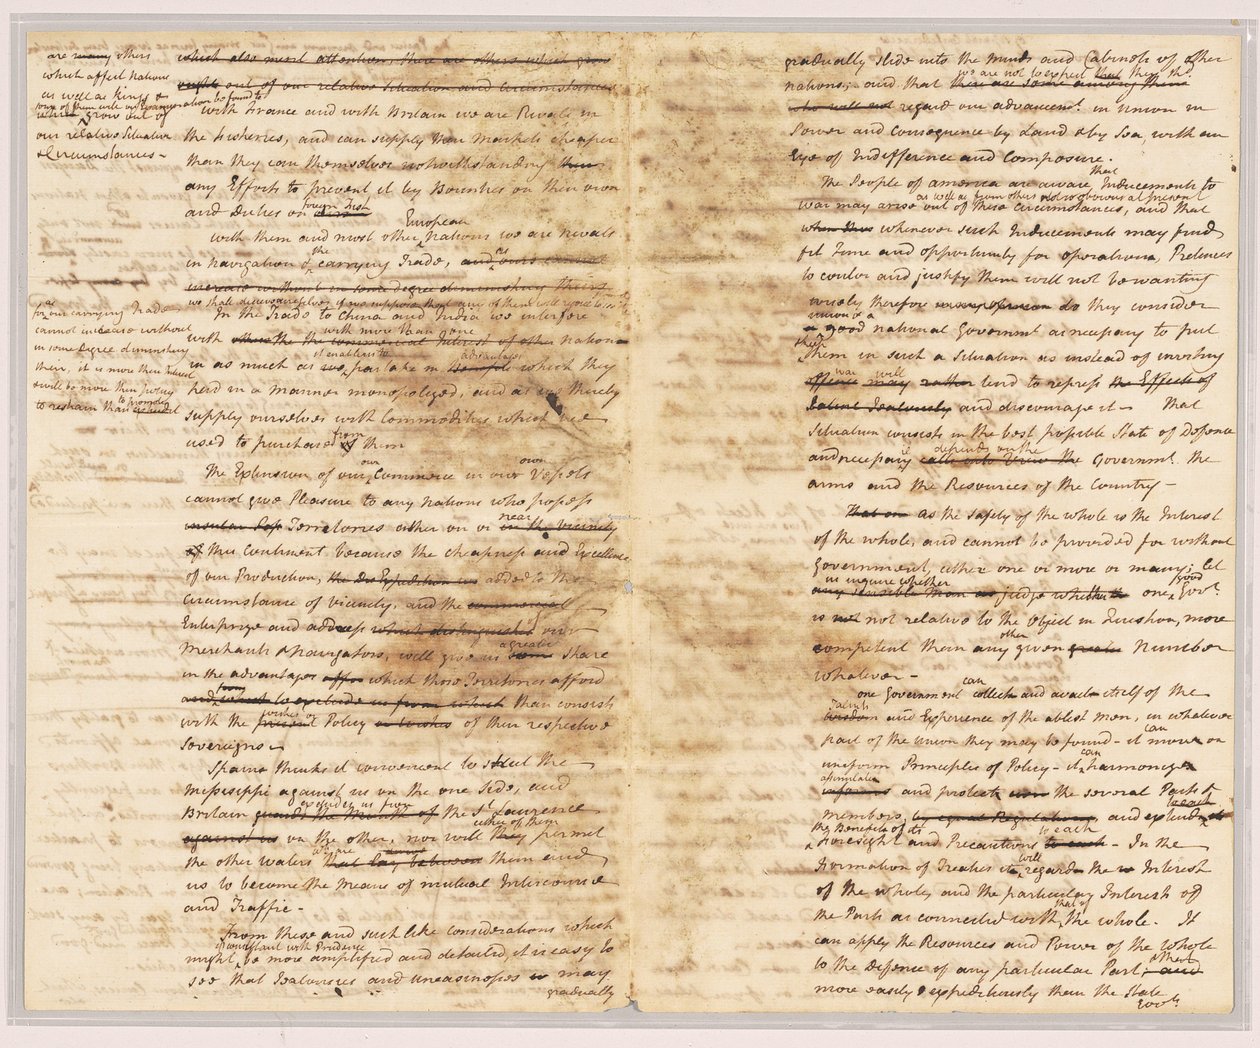 are many others
which affect Nations
as well as Kings &
some of them will on Examination be found to
which grow out of
our relative Situation
& Circumstances -
which also merit attention, there are others which grow
out of our relative Situation and Circumstances
With France and with Britain we are Rivals in
the Fisheries, and can supply their Markets cheaper
than they can themselves notwithstanding
any Efforts to prevent it by Bounties on their own
and Duties on foreign Fish
European
with them and most other Nations we are Rivals
in navigation & the carrying Trade, and
increase without in some degree diminishing theirs
we shall deceive ourselves if we suppose that any of them will rejoice to see it
for as our carrying Trade
cannot increase without
in some degree diminishing
theirs, it is more their Interest
& will be more their Policy
to restrain than to promote it
In the Trade to China and India we interfere
with more than one
with the commercial Interest of other nations
it enables us to advantages
in as much as we partake in Benefits which they
held in a manner monopolized, and as we thereby
supply ourselves with Commodities which we
used to purchase from them
The Extension of our own Commerce in our own Vessels
cannot give Pleasure to any Nations who possess
near
Territories either on or in the Vicinity
of this Continent because the cheapness and Excellence
of our Production, added to the
Circumstance of Vicinity, and the commercial
Enterprize and address which distinguishes our
a greater
Merchants & Navigators, will give us some Share
in the advantages which those Territories afford
from
than consists
wishes or
with the Policy or wishes of their respective
Sovereigns
Spain thinks it convenient to shut the
Missisippi against us on the one side, and
excludes us from
Britain guards the Mouth of the St Laurence
either of them
against us on the other, nor will they permit
the other waters that lay between them and
us to become the Means of mutual Intercourse
and Traffic -
From these and such like considerations which
if consistant with Prudence
might be more amplified and detailed, it is easy to
see that Jealousies and uneasinesses may
gradually
gradually slide into the minds and Cabinets of other
we are not to expect that they shd.
nations; and that there are some among them
who will not regard our advancemt. in union in
Power and consequence by Land & by Sea, with an
Eye of Indifference and Composure.
that
The People of america are aware Inducements to
as well as from others not so obvious at present
war may arise out of these Circumstances, and that
whenever such Inducements may find
fit Time and opportunity for operations, Pretences
to color and justify them will not be wanting
wisely therefore do they consider
union & a
a good national Governmt as necessary to put
& keep
them in such a Situation as instead of inviting
war will
may rather tend to repress the Effects of
latent Jealousy and discourage it - That
Situation consists in the best possible State of Defence
depends on the
and necessary call into View the Governmt. the
arms and the Resources of the Country -
That as the safety of the whole is the Interest
of the whole, and cannot be provided for without
Government, either one or more or many; let
us inquire whether good
any sensible Man judge whether one Govt.
is not relative to the object in Question, more
other
competent than any given greater Number
whatever -
can
one Government collect and avail itself of the
Talents
wisdom and Experience of the ablest Men, in whatever
can
part of the Union they may be found - it move on
can
uniform Principles of Policy - it harmonize
assimilate
and protect the several Parts &
to each
members, by equal Regulations, and extend
the Benefits of its
to each
foresight and Precautions to each - In the
will
formation of Treaties it regard the Interest
of the whole, and the particular Interests of
that of
the Parts as connected with the whole. It
can apply the Resources and Power of the whole
to the Defence of any particular Part, & that
more easily & expeditiously than the State
Govts